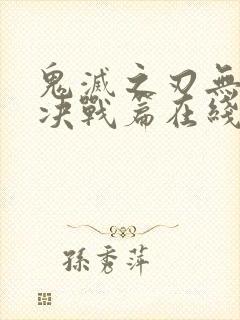 鬼滅之刃無
决戰篇在綫
孫秀萍